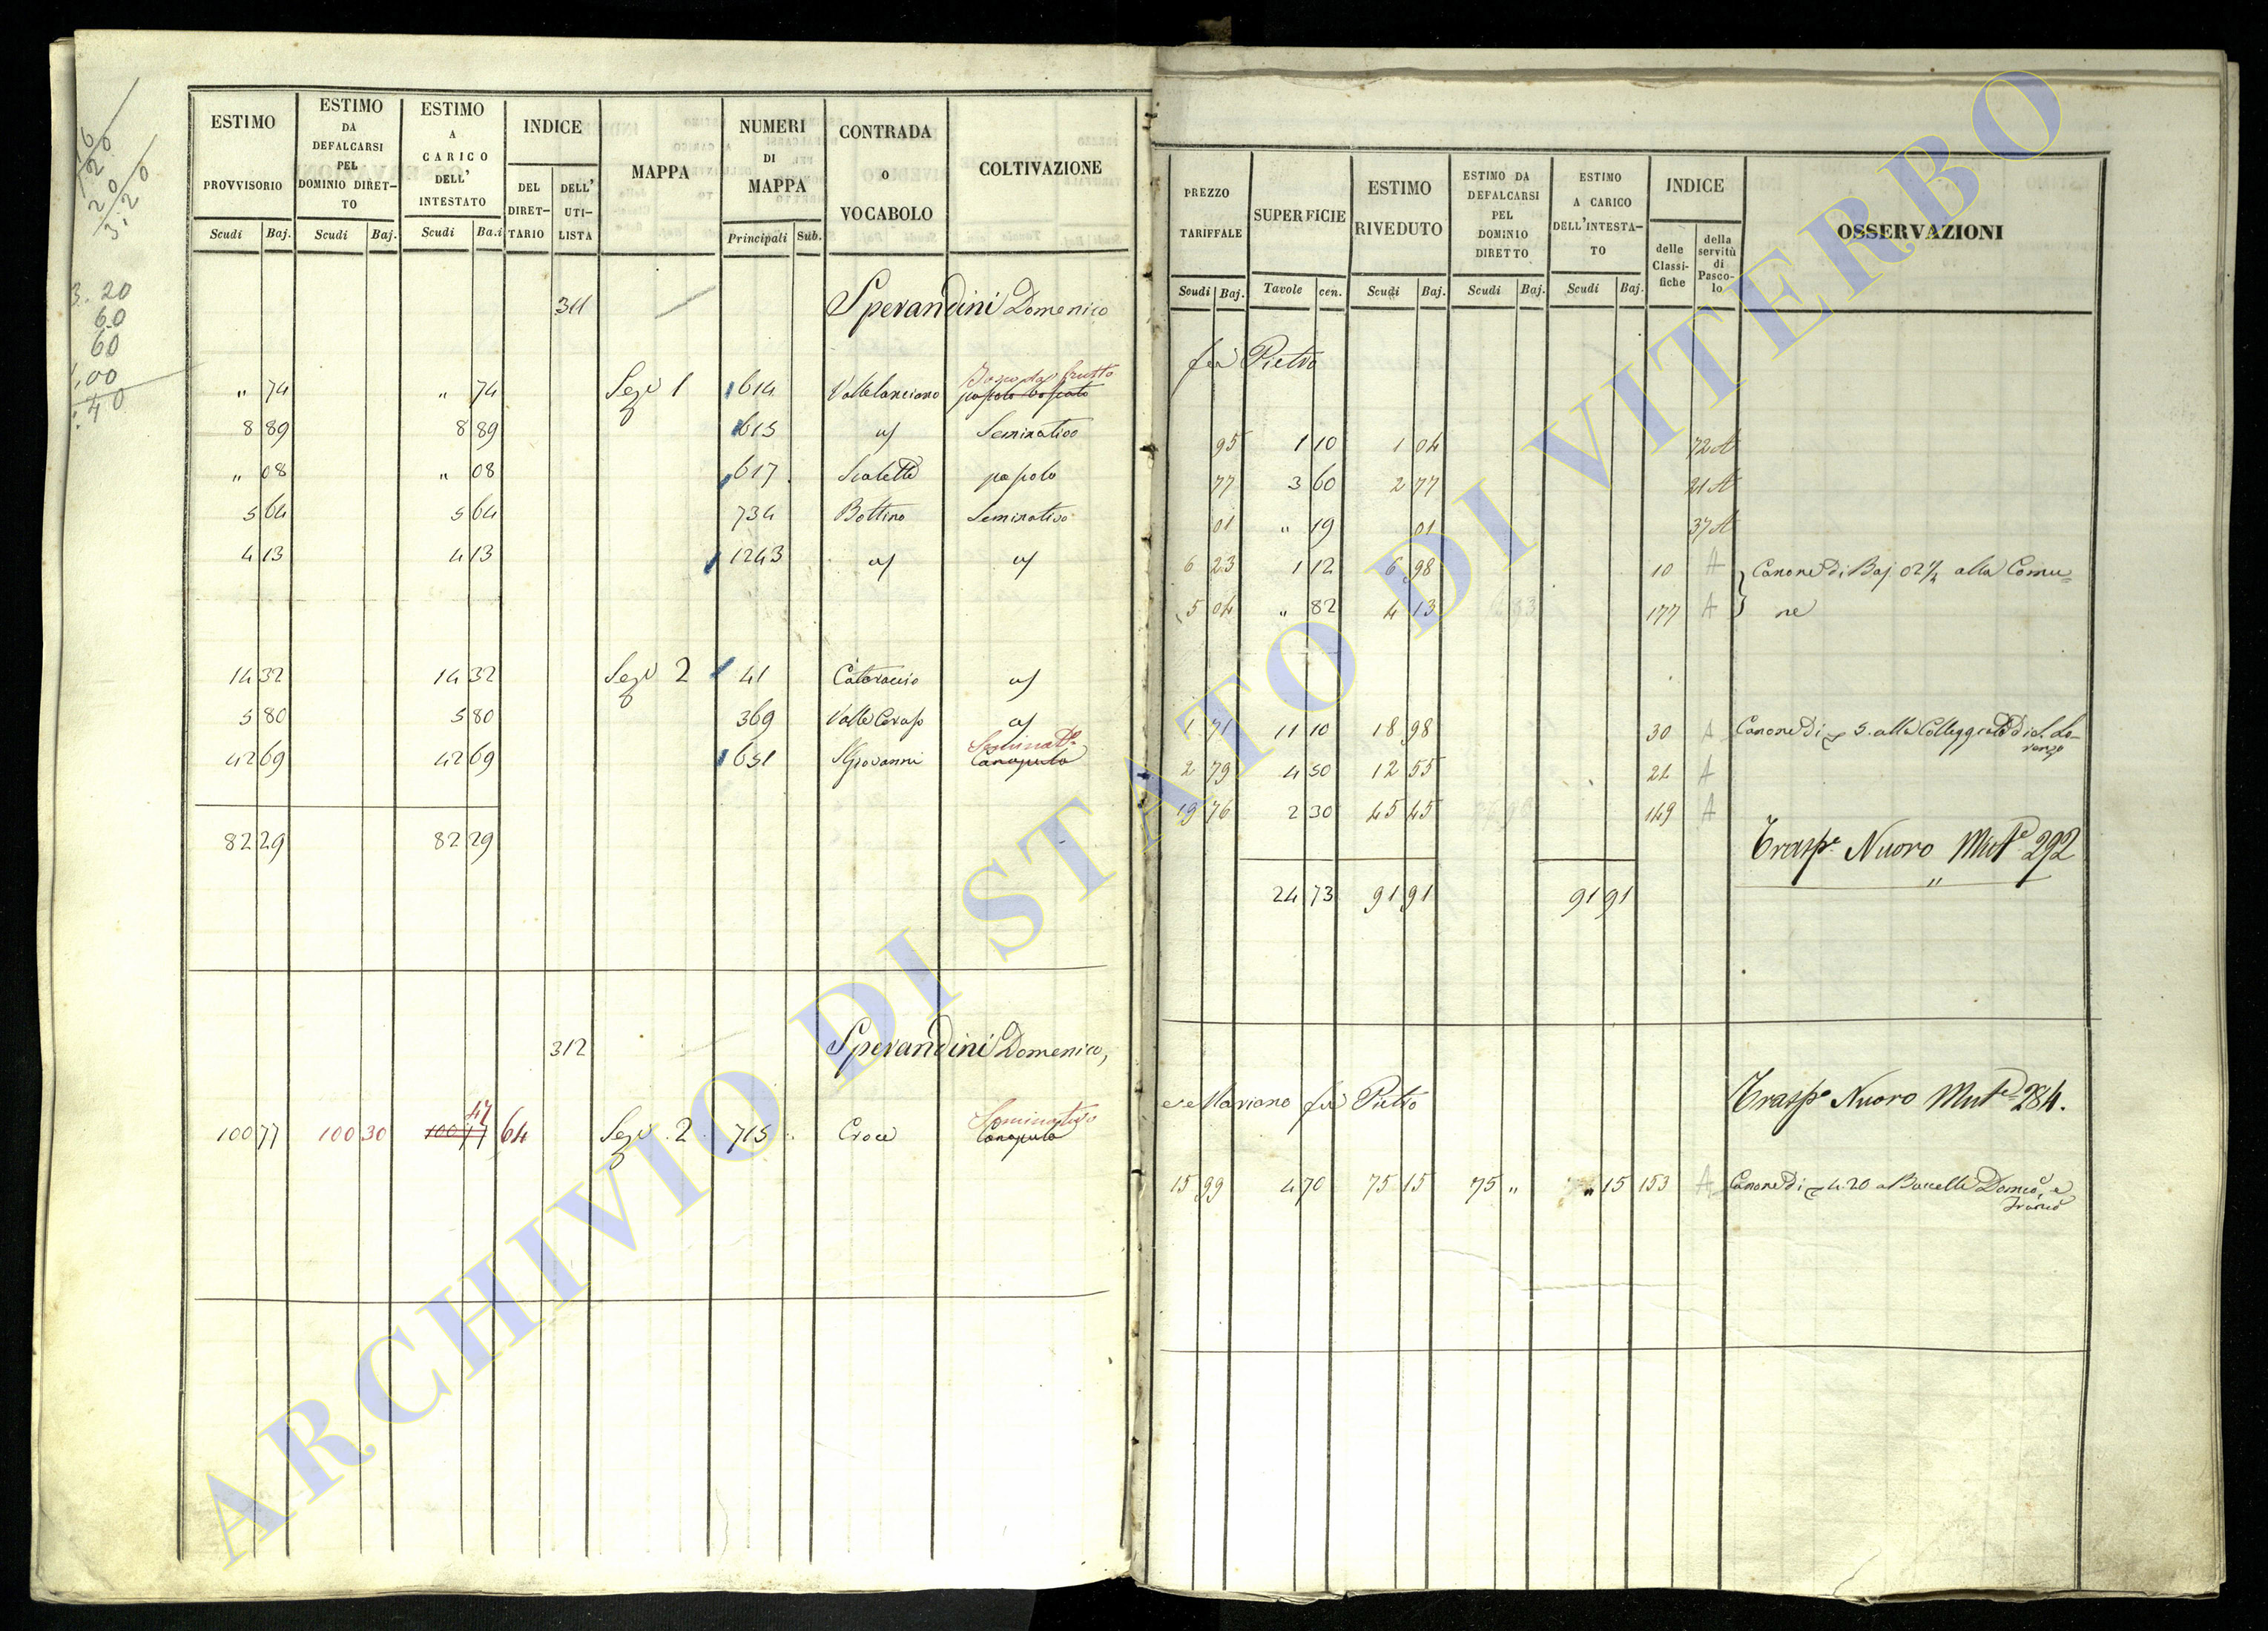 ESTIMO PROVVISORIO Scudi Baj.
ESTIMO DA DEFALCARSI PEL DOMINIO DIRET-TO Scudi Baj.
ESTIMO A CARICO DELL' INTESTATO Scudi Ba.i
INDICE DEL DIRET-TARIO DELL' UTI-LISTA
MAPPA
NUMERI DI MAPPA Principali Sub.
CONTRADA O VOCABOLO
COLTIVAZIONE
PREZZO TARIFFALE Scudi Baj.
SUPERFICIE Tavole cen.
ESTIMO RIVEDUTO Scudi Baj.
ESTIMO DA DEFALCARSI PEL DOMINIO DIRETTO Scudi Baj.
ESTIMO A CARICO DELL'INTESTA-TO Scudi Baj.
INDICE delle Classi-fiche della servitù di Pasco-lo
OSSERVAZIONI
3. 20
60
60
311 Sperandini Domenico
fu Pietro
" 74 " 74 Sez 1 614 Vallelanciano
8 89 8 89 615 Seminativo
" 08 " 08 617 Scalette
5 64 5 64 734 Bottino Seminativo
4 13 4 13 1243
95 1 10 1 04 72 A
77 3 60 2 77 21 A
01 " 19 01 37 A
6 23 1 12 6 98 10 A Canone di Baj 02½ alla Comu=
5 04 " 82 4 13 177 A ne
14 32 14 32 Sez 2 41
5 80 5 80 369
42 69 42 69 651 S Giovanni Seminato Canapulo
82 29 82 29
1 71 11 10 18 98 30 A Canone di 5. alla Colleggiata di S. Lo-
renzo
2 79 4 50 12 55 21 A
19 76 2 30 45 45 149 A
Trasp. Nuovo Mut. 292
24 73 91 91 91 91
312 Sperandini Domenico,
e Mariano fu Pietro
Trasp. Nuovo Mut. 284.
100 77 100 30 47 64 Sez. 2 715 Croce Seminativo Canapulo
15 99 4 70 75 15 75 " " 15 153 A Canone di 4.20 a Domco, e
Franco
ARCHIVIO DI STATO DI VITERBO